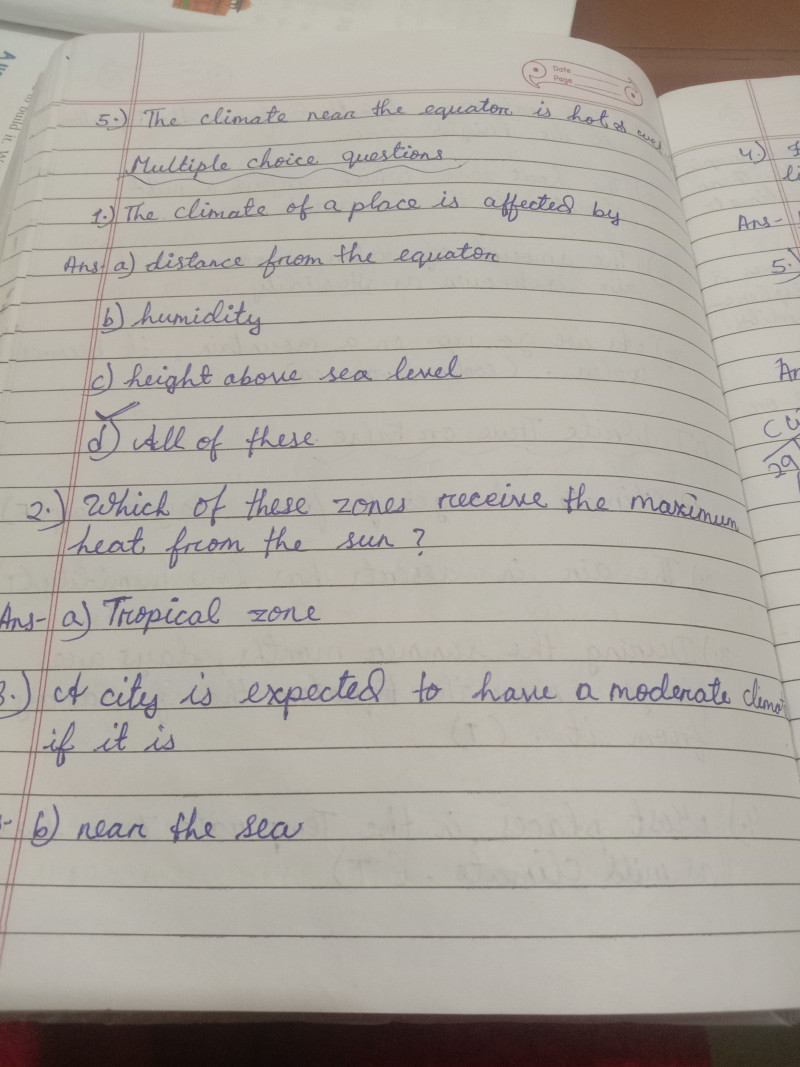 Date
Page
5.) The climate near the equator is hot & wet
Multiple choice questions
1.) The climate of a place is affected by
Ans- a) distance from the equator
b) humidity
c) height above sea level
d) All of these
2.) Which of these zones receive the maximum
heat from the sun ?
Ans- a) Tropical zone
3.) A city is expected to have a moderate
if it is
b) near the sea
4.)
Ans-
5.